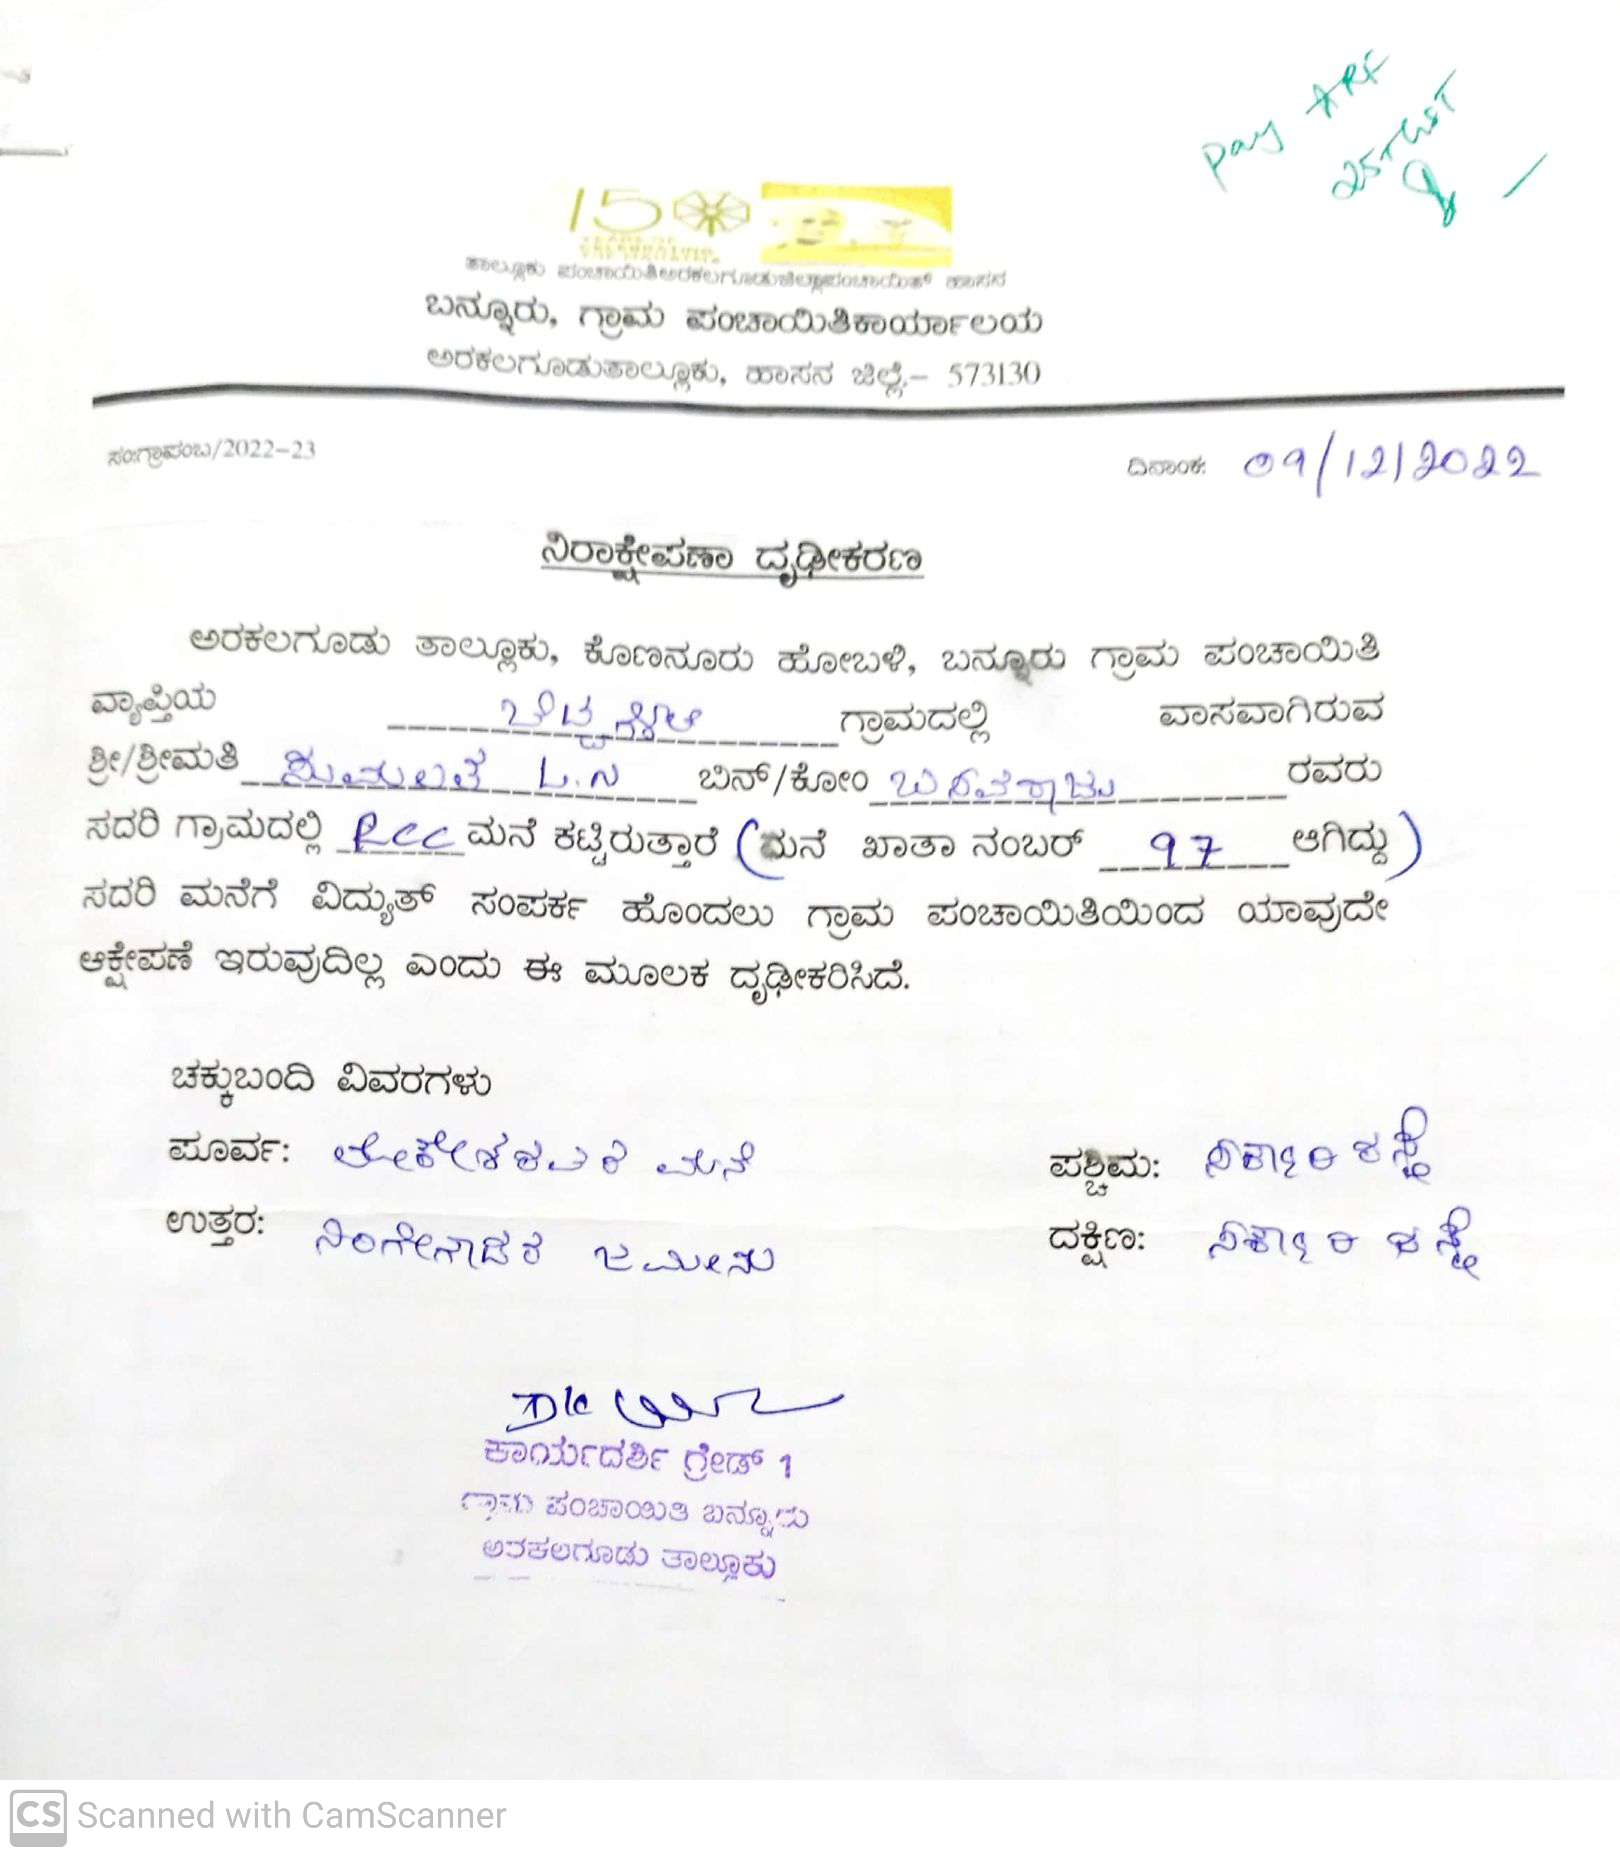 pay ARF
25+GST
150
YEARS OF
CELEBRATING
ತಾಲ್ಲೂಕು ಪಂಚಾಯಿತಿಅರಕಲಗೂಡುಜಿಲ್ಲಾಪಂಚಾಯತ್ ಹಾಸನ
ಬನ್ನೂರು, ಗ್ರಾಮ ಪಂಚಾಯಿತಿಕಾರ್ಯಾಲಯ
ಅರಕಲಗೂಡುತಾಲ್ಲೂಕು, ಹಾಸನ ಜಿಲ್ಲೆ.– 573130
ಸಂಗ್ರಾಪಂಬ/2022–23 ದಿನಾಂಕ: 09/12/2022
ನಿರಾಕ್ಷೇಪಣಾ ದೃಢೀಕರಣ
ಅರಕಲಗೂಡು ತಾಲ್ಲೂಕು, ಕೊಣನೂರು ಹೋಬಳಿ, ಬನ್ನೂರು ಗ್ರಾಮ ಪಂಚಾಯಿತಿ
ವ್ಯಾಪ್ತಿಯ ಗ್ರಾಮದಲ್ಲಿ ವಾಸವಾಗಿರುವ
ಶ್ರೀ/ಶ್ರೀಮತಿ ಸುಮಲತ L.N ಬಿನ್/ಕೋಂ ಬಸವರಾಜು ರವರು
ಸದರಿ ಗ್ರಾಮದಲ್ಲಿ Rcc ಮನೆ ಕಟ್ಟಿರುತ್ತಾರೆ (ಮನೆ ಖಾತಾ ನಂಬರ್ 97 ಆಗಿದ್ದು)
ಸದರಿ ಮನೆಗೆ ವಿದ್ಯುತ್ ಸಂಪರ್ಕ ಹೊಂದಲು ಗ್ರಾಮ ಪಂಚಾಯಿತಿಯಿಂದ ಯಾವುದೇ
ಆಕ್ಷೇಪಣೆ ಇರುವುದಿಲ್ಲ ಎಂದು ಈ ಮೂಲಕ ದೃಢೀಕರಿಸಿದೆ.
ಚಕ್ಕುಬಂದಿ ವಿವರಗಳು
ಪೂರ್ವ: ಲೋಕೇಶರವರ ಮನೆ ಪಶ್ಚಿಮ: ಸರ್ಕಾರಿ ರಸ್ತೆ
ಉತ್ತರ: ನಿಂಗೇಗೌಡರ ಜಮೀನು ದಕ್ಷಿಣ: ಸರ್ಕಾರಿ ರಸ್ತೆ
ಕಾರ್ಯದರ್ಶಿ ಗ್ರೇಡ್ 1
ಗ್ರಾಮ ಪಂಚಾಯಿತಿ ಬನ್ನೂರು
ಅರಕಲಗೂಡು ತಾಲ್ಲೂಕು
CS Scanned with CamScanner